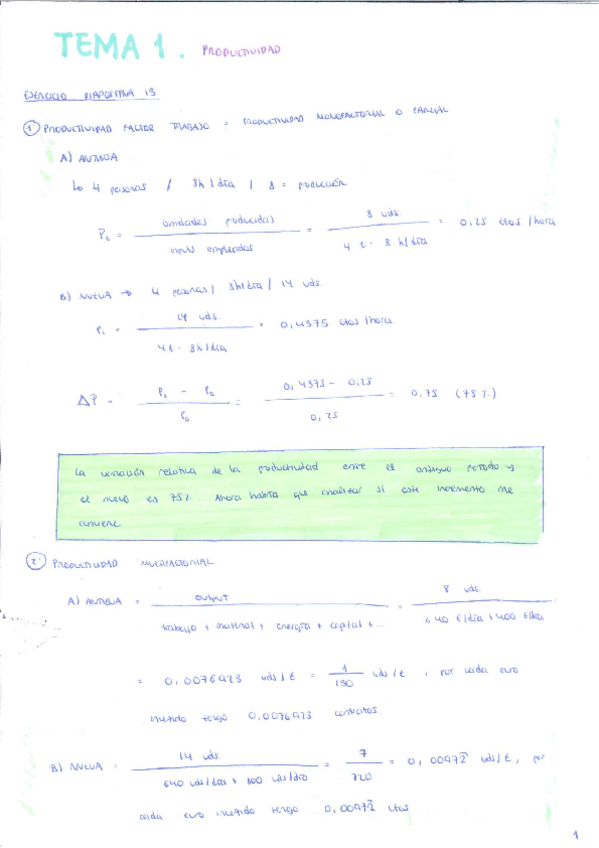 TEMA 1. PRODUCTIVIDAD
EJERCICIO DIAPOSITIVA 13
1 PRODUCTIVIDAD FACTOR TRABAJO = PRODUCTIVIDAD MONOFACTORIAL O PARCIAL
A) ANTIGUA
↳ 4 personas / 8h/día / 8 = producción
P₀ = unidades producidas / inputs empleados = 8 uds. / 4 t · 8 h/día = 0,25 ctos /hora
B) NUEVA → 4 personas / 8h/día / 14 uds.
P₁ = 14 uds. / 4t · 8h/día = 0,4375 ctos /hora
ΔP = P₁ - P₀ / P₀ = 0,4375 - 0,25 / 0,25 = 0,75 (75%)
La variación relativa de la productividad entre el antiguo período y
el nuevo es 75%. Ahora habría que analizar si este incremento me
conviene
2 PRODUCTIVIDAD MULTIFACTORIAL
A) ANTIGUA = output / trabajo + material + energía + capital + ... = 8 uds. / 640 €/día + 400 €/día
= 0,0076923 uds/€ = 1/130 uds/€, por cada euro
metido tengo 0,0076923 contratos.
B) NUEVA = 14 uds. / 640 uds/día + 800 uds/día = 7/720 = 0,00972 uds/€, por
cada euro metido tengo 0,00972 ctos
1